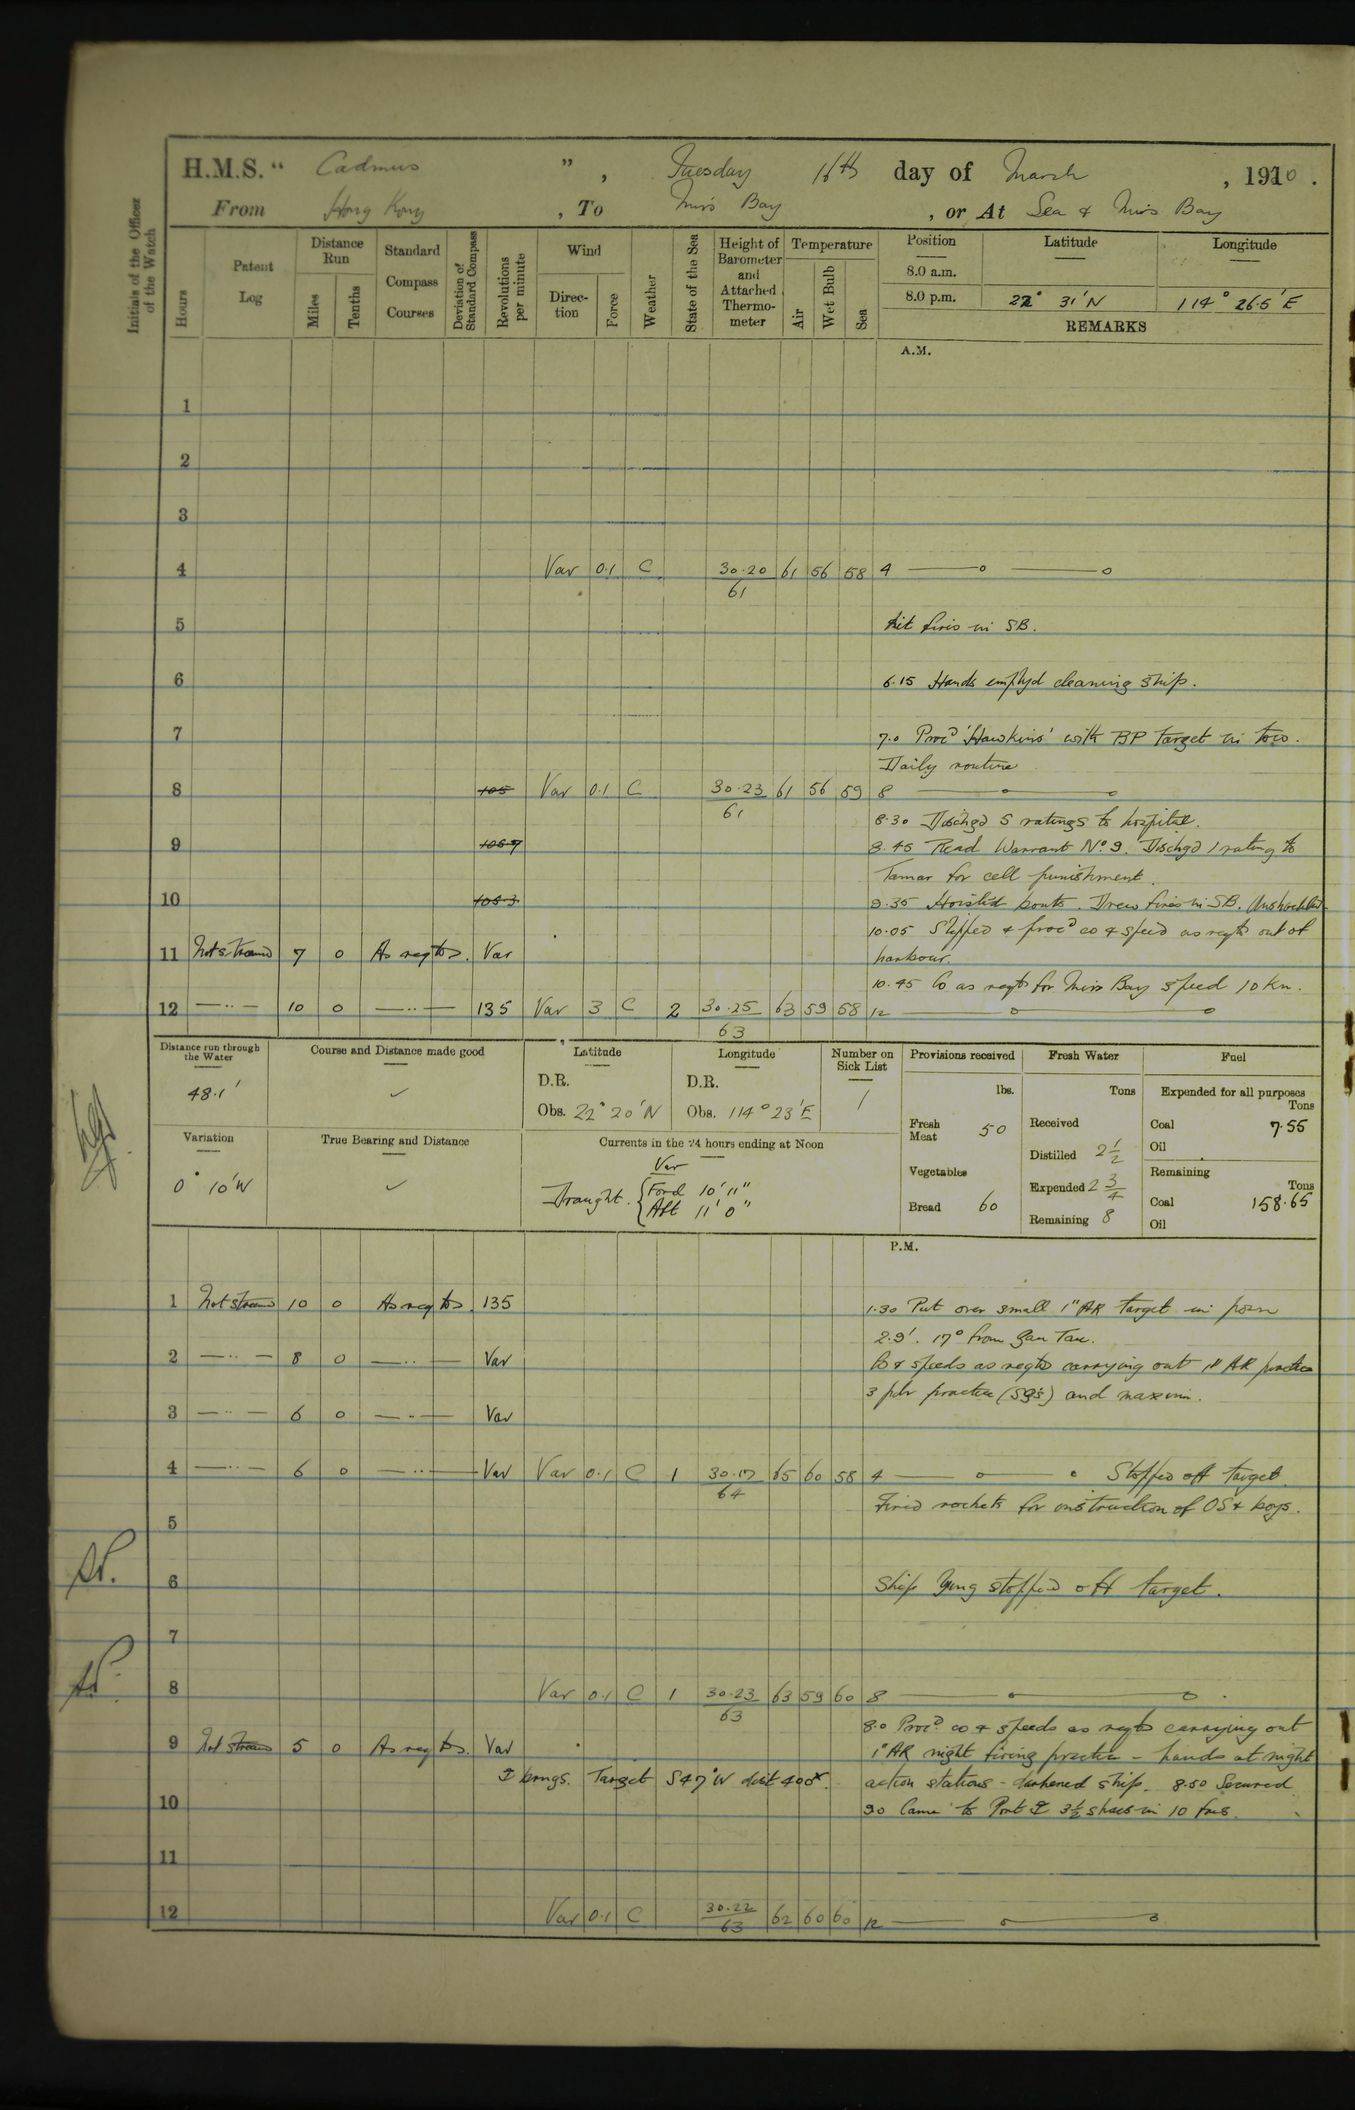 H.M.S. " Cadmus ", Tuesday 16th day of March, 1920.
From Hong Kong, To Mirs Bay, or At Sea & Mirs Bay
Initials of the Officer of the Watch
Hours
Patent Log
Distance Run
Miles
Tenths
Standard Compass Courses
Deviation of Standard Compass
Revolutions per minute
Wind
Direction
Force
Weather
State of the Sea
Height of Barometer and Attached Thermometer
Temperature
Air
Wet Bulb
Sea
Position Latitude Longitude
8.0 a.m.
8.0 p.m. 22° 31' N 114° 26.5' E
REMARKS
A.M.
1
2
3
4 Var 0.1 C 30.20 61 56 58 4
61
5 fires in SB.
6 6.15 Hands employd cleaning ship.
7 7.0 Procd 'Hawkins' with BP target in tow.
Daily routine
8 105 Var 0.1 C 30.23 61 56 59 8
61
8.30 Dischgd 5 ratings to hospital.
9 106.7 8.45 Read Warrant No. 9. Dischgd 1 rating to
Tamar for cell punishment.
10 108.3 9.35 Hoisted boats. Drew fires in SB. Unshackled
10.05 Slipped & procd co & speed as reqte out of
11 Not streamd 7 0 As reqte. Var harbour.
10.45 Co as reqte for Mirs Bay speed 10 kn.
12 — ·· — 10 0 — ·· — 135 Var 3 C 2 30.25 63 59 58 12
63
Distance run through the Water
48.1'
Course and Distance made good
✓
Latitude
D.R.
Obs. 22° 20' N
Longitude
D.R.
Obs. 114° 23' E
Number on Sick List
1
Provisions received
lbs.
Fresh Meat 50
Vegetables
Bread 60
Fresh Water
Tons
Received
Distilled 2 1/2
Expended 2 3/4
Remaining 8
Fuel
Expended for all purposes
Tons
Coal 7.55
Oil
Remaining
Tons
Coal 158.65
Oil
Variation
0° 10' W
True Bearing and Distance
✓
Currents in the 24 hours ending at Noon
Var
Draught. { Ford 10' 11"
Aft 11' 0"
P.M.
1 Not streamd 10 0 As reqte. 135 1.30 Put over small 1" AR target in posn
2.9'. 17° from Gau Tau.
2 — ·· — 8 0 — ·· — Var Co & speeds as reqte carrying out 1" AR practice
3 pdr practice (SGs) and maxim.
3 — ·· — 6 0 — ·· — Var
4 — ·· — 6 0 — ·· — Var Var 0.1 C 1 30.17 65 60 58 4 Stopped off target.
64
Fired rockets for instruction of OS & boys.
5
6 Ship lying stopped off target.
7
8 Var 0.1 C 1 30.23 63 59 60 8
63
8.0 Procd co & speeds as reqte carrying out
9 Not streamd 5 0 As reqte. Var 1" AR night firing practice - hands at night
⚓ brngs. Target S47°W dist 400x. action stations - darkened ship. 8.50 Secured
10 9.0 Came to Port ⚓ 3½ shacs in 10 fms.
11
12 Var 0.1 C 30.22 62 60 60 12
63